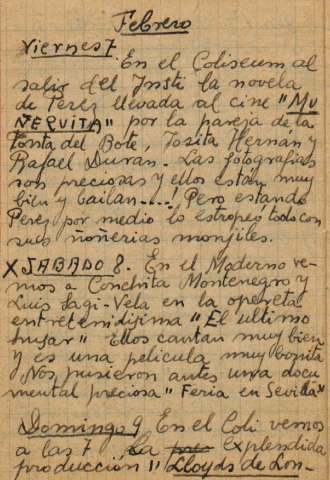 Febrero
Viernes 7
En el Coliseum al
salir del Insti la novela
de Perez llevada al cine "MU
ÑEQUITA" por la pareja de la
Tonta del Bote, Josita Hernan y
Rafael Duran. Las fotografias
son preciosas y ellos estan muy
bien y bailan.... Pero estando
Perez por medio lo estropeo todo con
sus ñoñerias monjiles.
X SABADO 8. En el Moderno ve-
mos a Conchita Montenegro y
Luis Sagi-Vela en la opereta
entretenidijima "El ultimo
husar" Ellos cantan muy bien
y es una pelicula muy bonita
Nos pusieron antes una docu
mental preciosa "Feria en Sevilla"
Domingo 9 En el Coli vemos
a las 7 La pre explendida
producción "Lloyds de Lon-